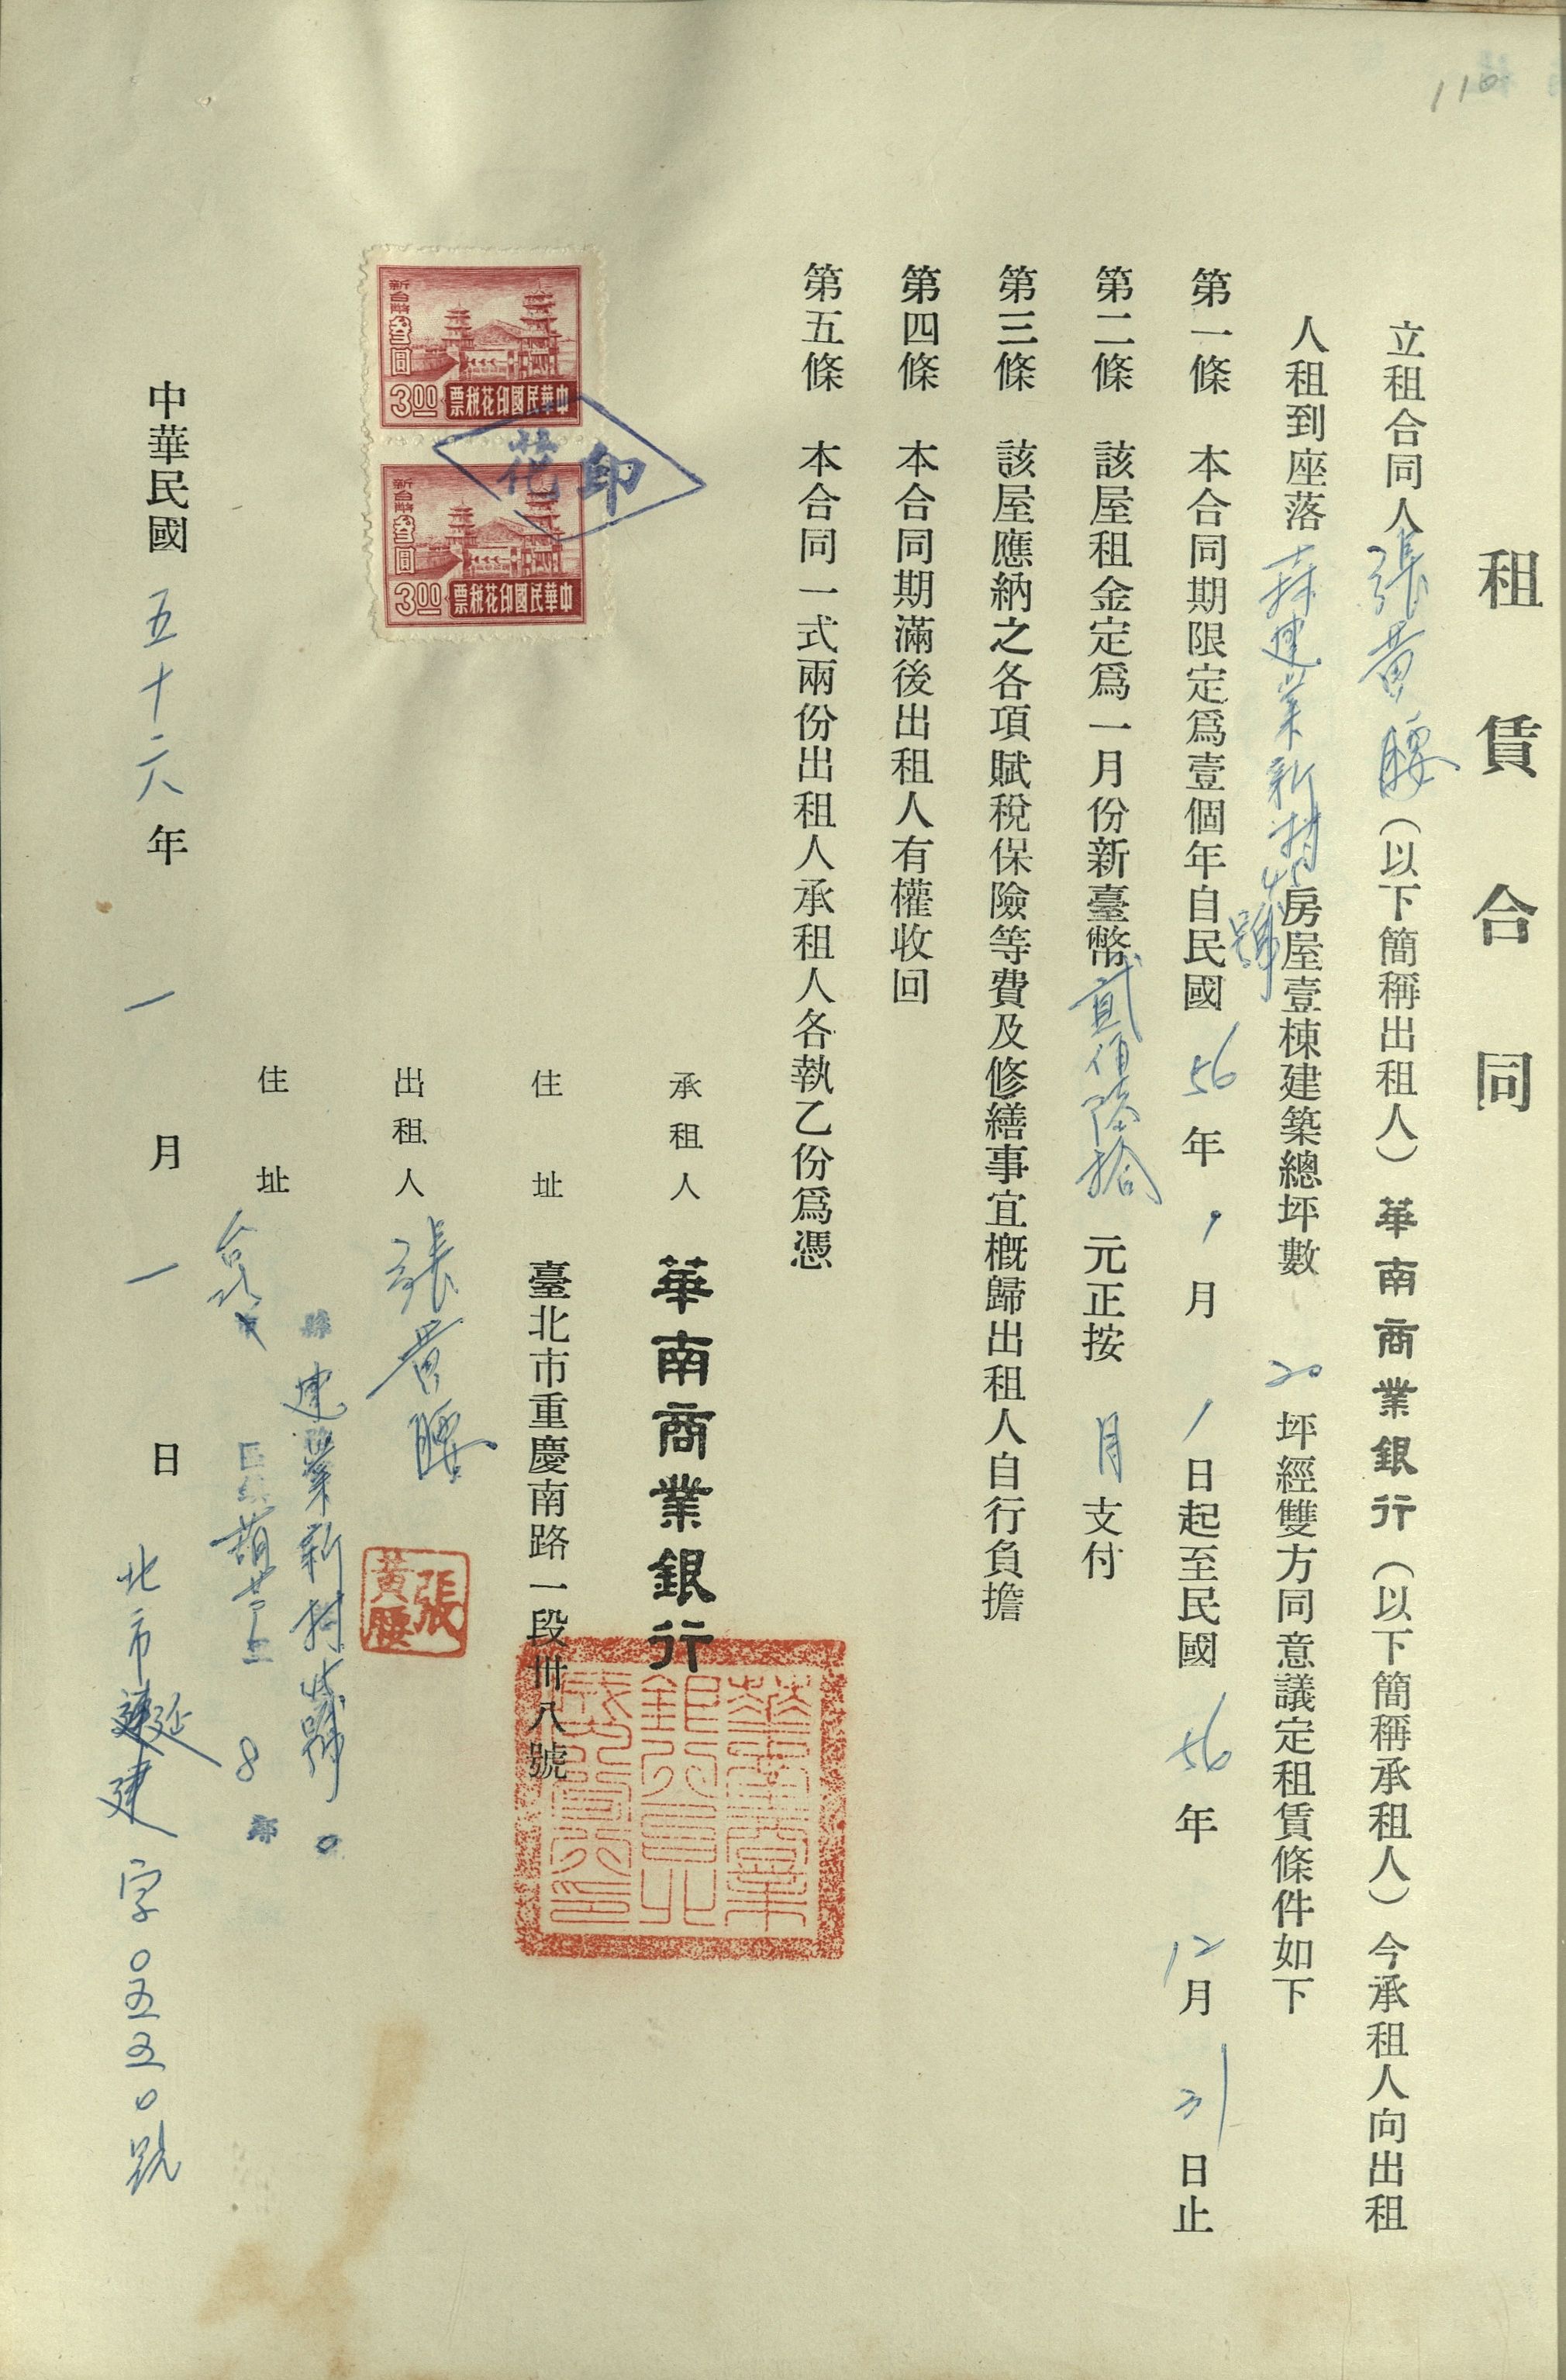 110
租賃合同
立租合同人張黃腰(以下簡稱出租人)華南商業銀行(以下簡稱承租人)今承租人向出租
人租到座落 建業新村 號房屋壹棟建築總坪數 20 坪經雙方同意議定租賃條件如下
第一條 本合同期限定爲壹個年自民國 56 年 1 月 1 日起至民國 56 年 12 月 31 日止
第二條 該屋租金定爲一月份新臺幣貳佰陸拾元正按 月 支付
第三條 該屋應納之各項賦稅保險等費及修繕事宜概歸出租人自行負擔
第四條 本合同期滿後出租人有權收回
第五條 本合同一式兩份出租人承租人各執乙份爲憑
承租人 華南商業銀行
住址 臺北市重慶南路一段卅八號
華南商業
銀行
出租人 張黃腰
張
黃腰
住址 台北
縣 建業新村 號
8 鄰
新台幣叁圓
3.00
票稅花印國民華中
新台幣叁圓
3.00
票稅花印國民華中
花印
中華民國五十六年一月一日 北市延建字0五五0號